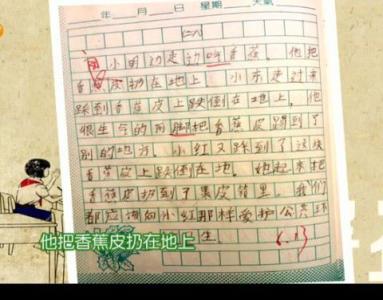 年 月 日 星期 天氣
(二八)
小明边走边吃香蕉。他把
香蕉皮扔在地上。小东走过来
踩到香蕉皮上跌倒在地上。他
很生气的用脚把香蕉皮踢到了
别的地方。小红又踩到了这块
香蕉皮上跌倒在地。她起来把
香蕉皮扔到了果皮箱里。我们
都应该向小红那样爱护公共环
生。
他把香蕉皮扔在地上